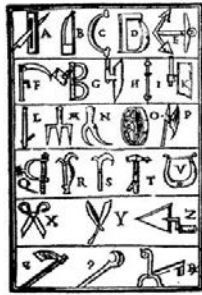 A B C D E
F G H I
L M N O P
Q R S T V
X Y Z